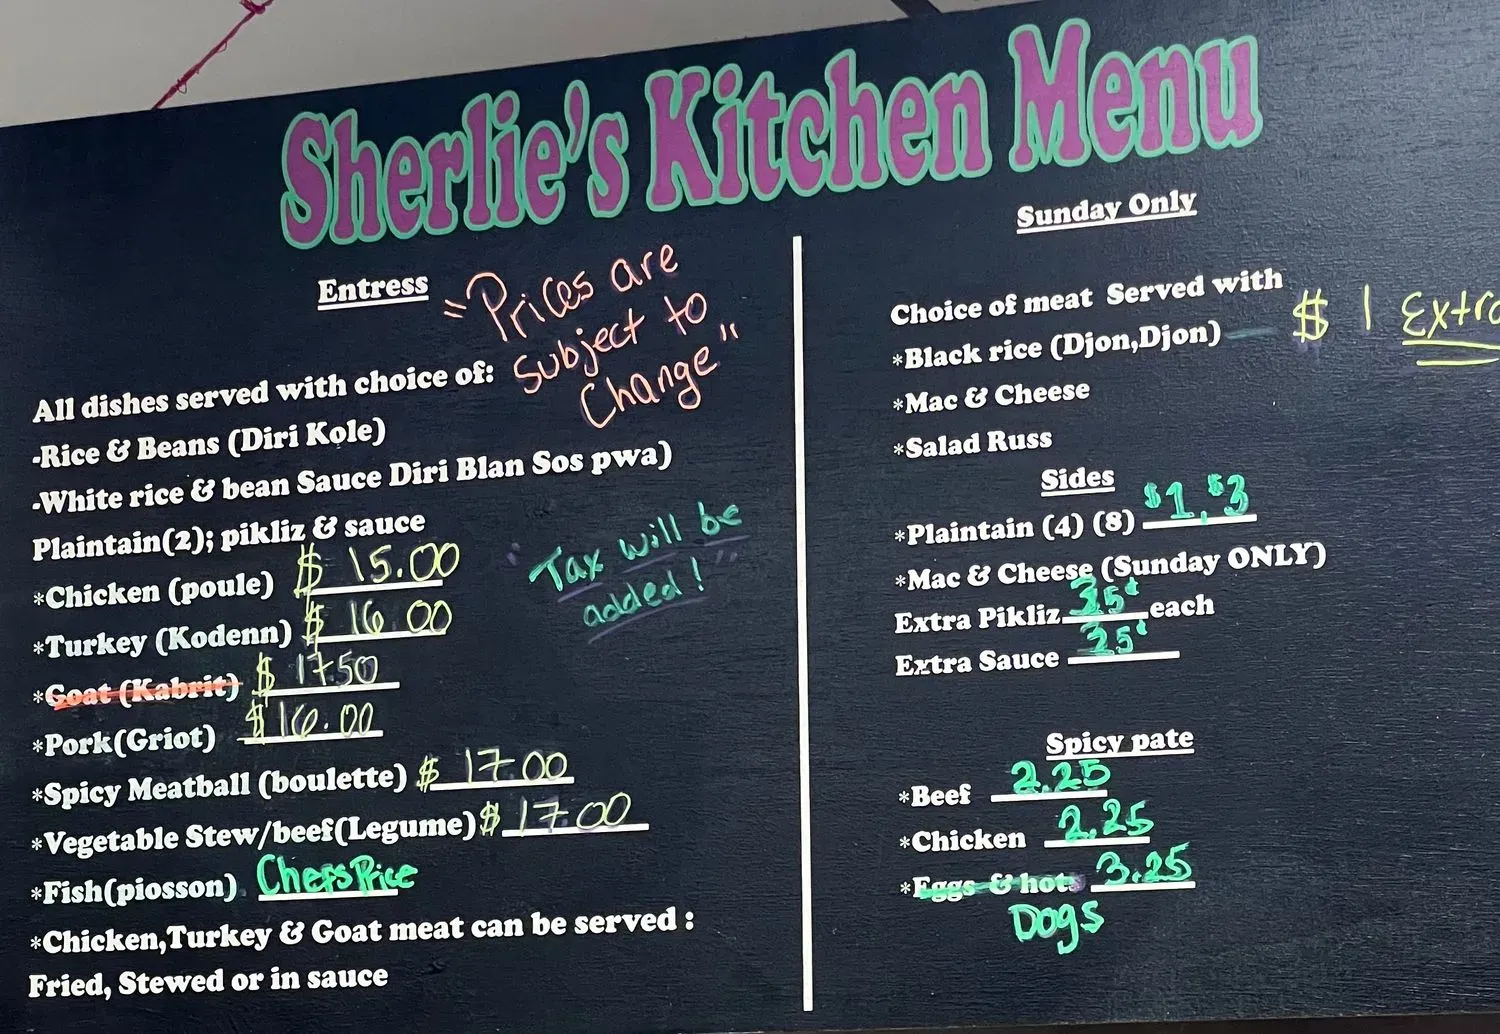 Sherlie's Kitchen Menu
Entress
"Prices are
subject to
Change"
All dishes served with choice of:
-Rice & Beans (Diri Kole)
-White rice & bean Sauce Diri Blan Sos pwa)
Plaintain(2); pikliz & sauce
*Chicken (poule) $ 15.00
*Turkey (Kodenn) $ 16 00
*Goat (Kabrit) $ 17.50
*Pork(Griot) $16.00
*Spicy Meatball (boulette) $ 17 00
*Vegetable Stew/beef(Legume) $ 17.00
*Fish(piosson) Chefs Price
*Chicken,Turkey & Goat meat can be served :
Fried, Stewed or in sauce
"Tax will be
added!"
Sunday Only
Choice of meat Served with
*Black rice (Djon,Djon) $ 1 Extra
*Mac & Cheese
*Salad Russ
Sides
*Plaintain (4) (8) $1, $3
*Mac & Cheese (Sunday ONLY)
Extra Pikliz each
Extra Sauce
Spicy pate
*Beef 2.25
*Chicken 2.25
*Eggs & hot 3.25
Dogs